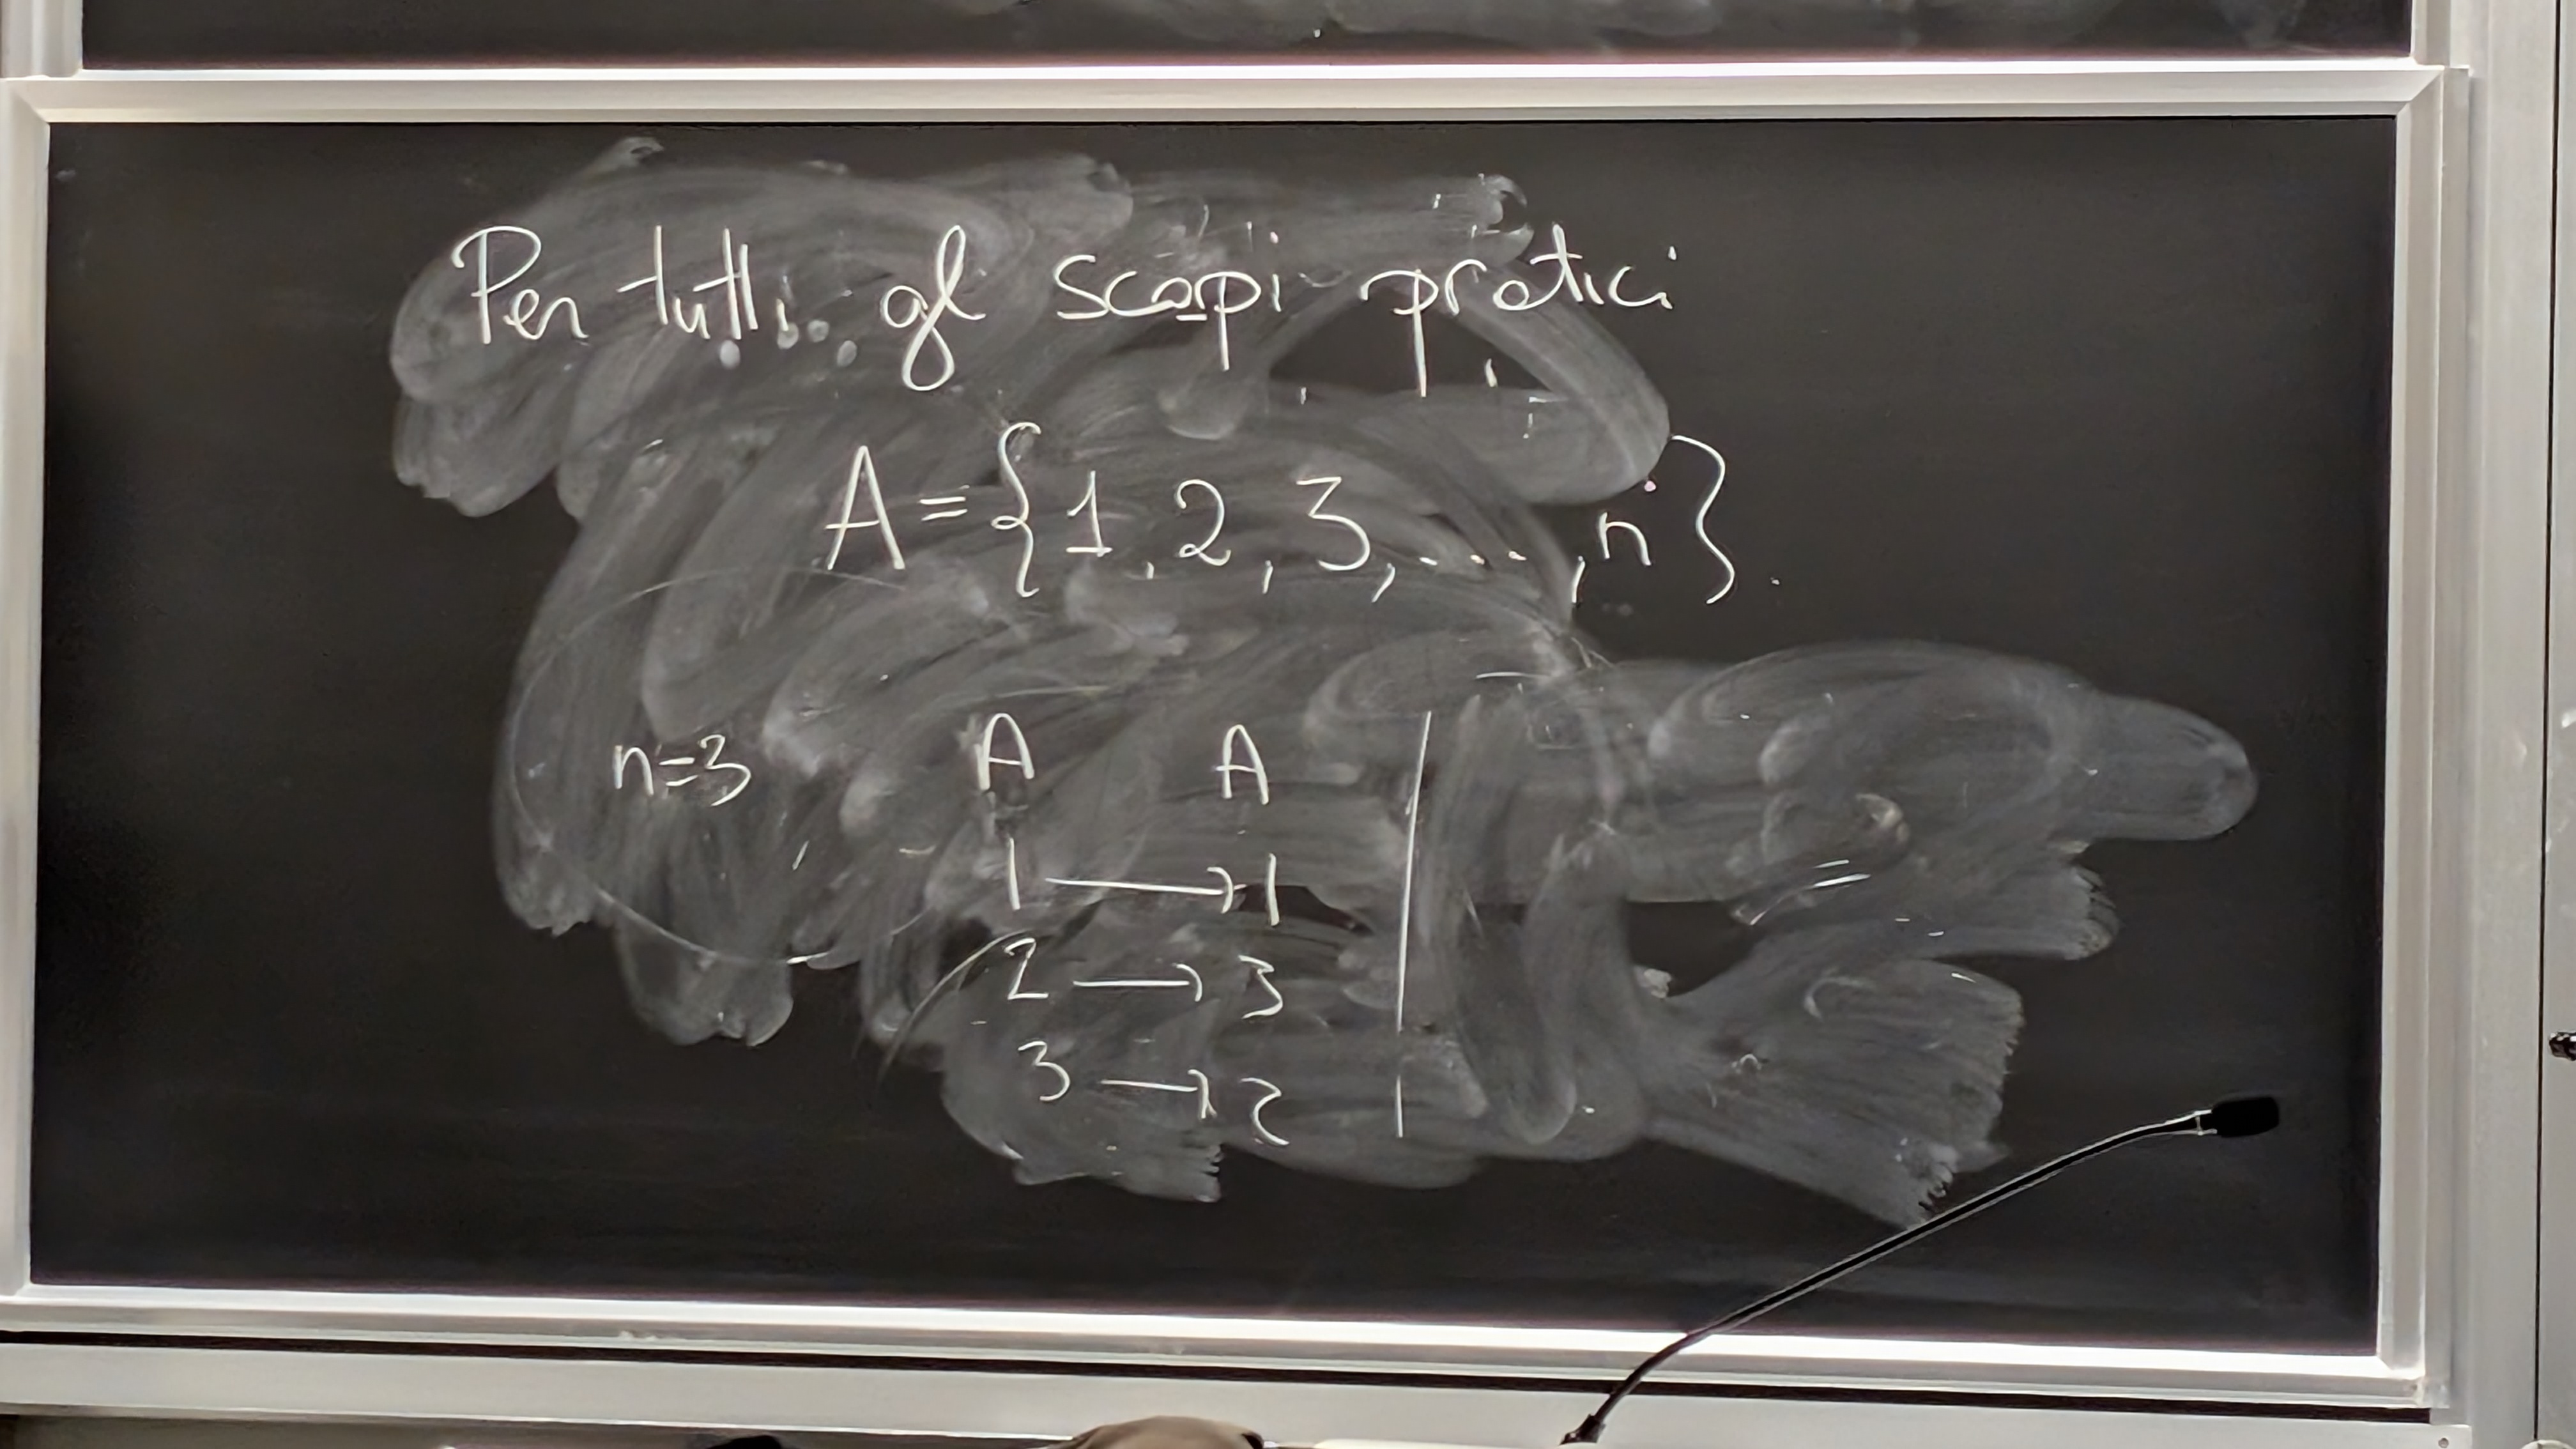 Per tutti gli scopi pratici
A = {1, 2, 3, ..., n}.
n=3 A A
1 → 1
2 → 3
3 → 2